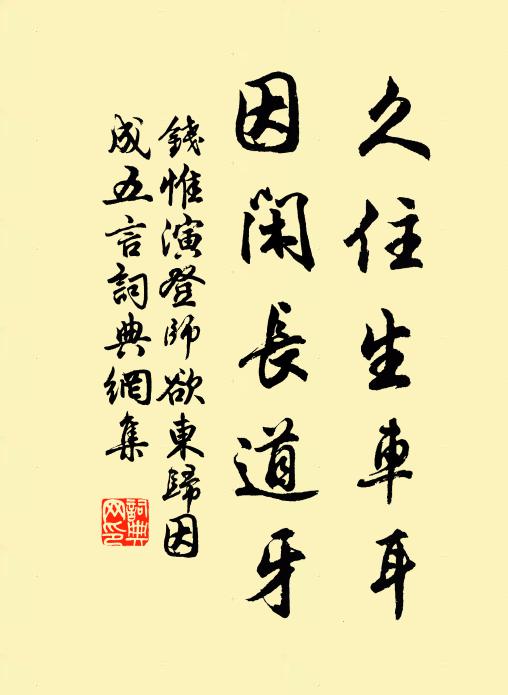 久住生車耳
因閑長道牙
錢惟演登師欲東歸因
成五言詞典網集
詞典
网印